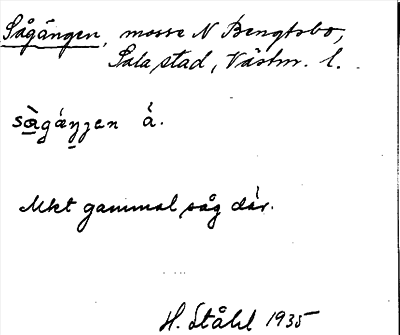 Sågängen, mosse N Bengtsbo,
Sala stad, Västm. l.
sàgáŋŋen á.
Mkt gammal såg där.
H. Ståhl 1935